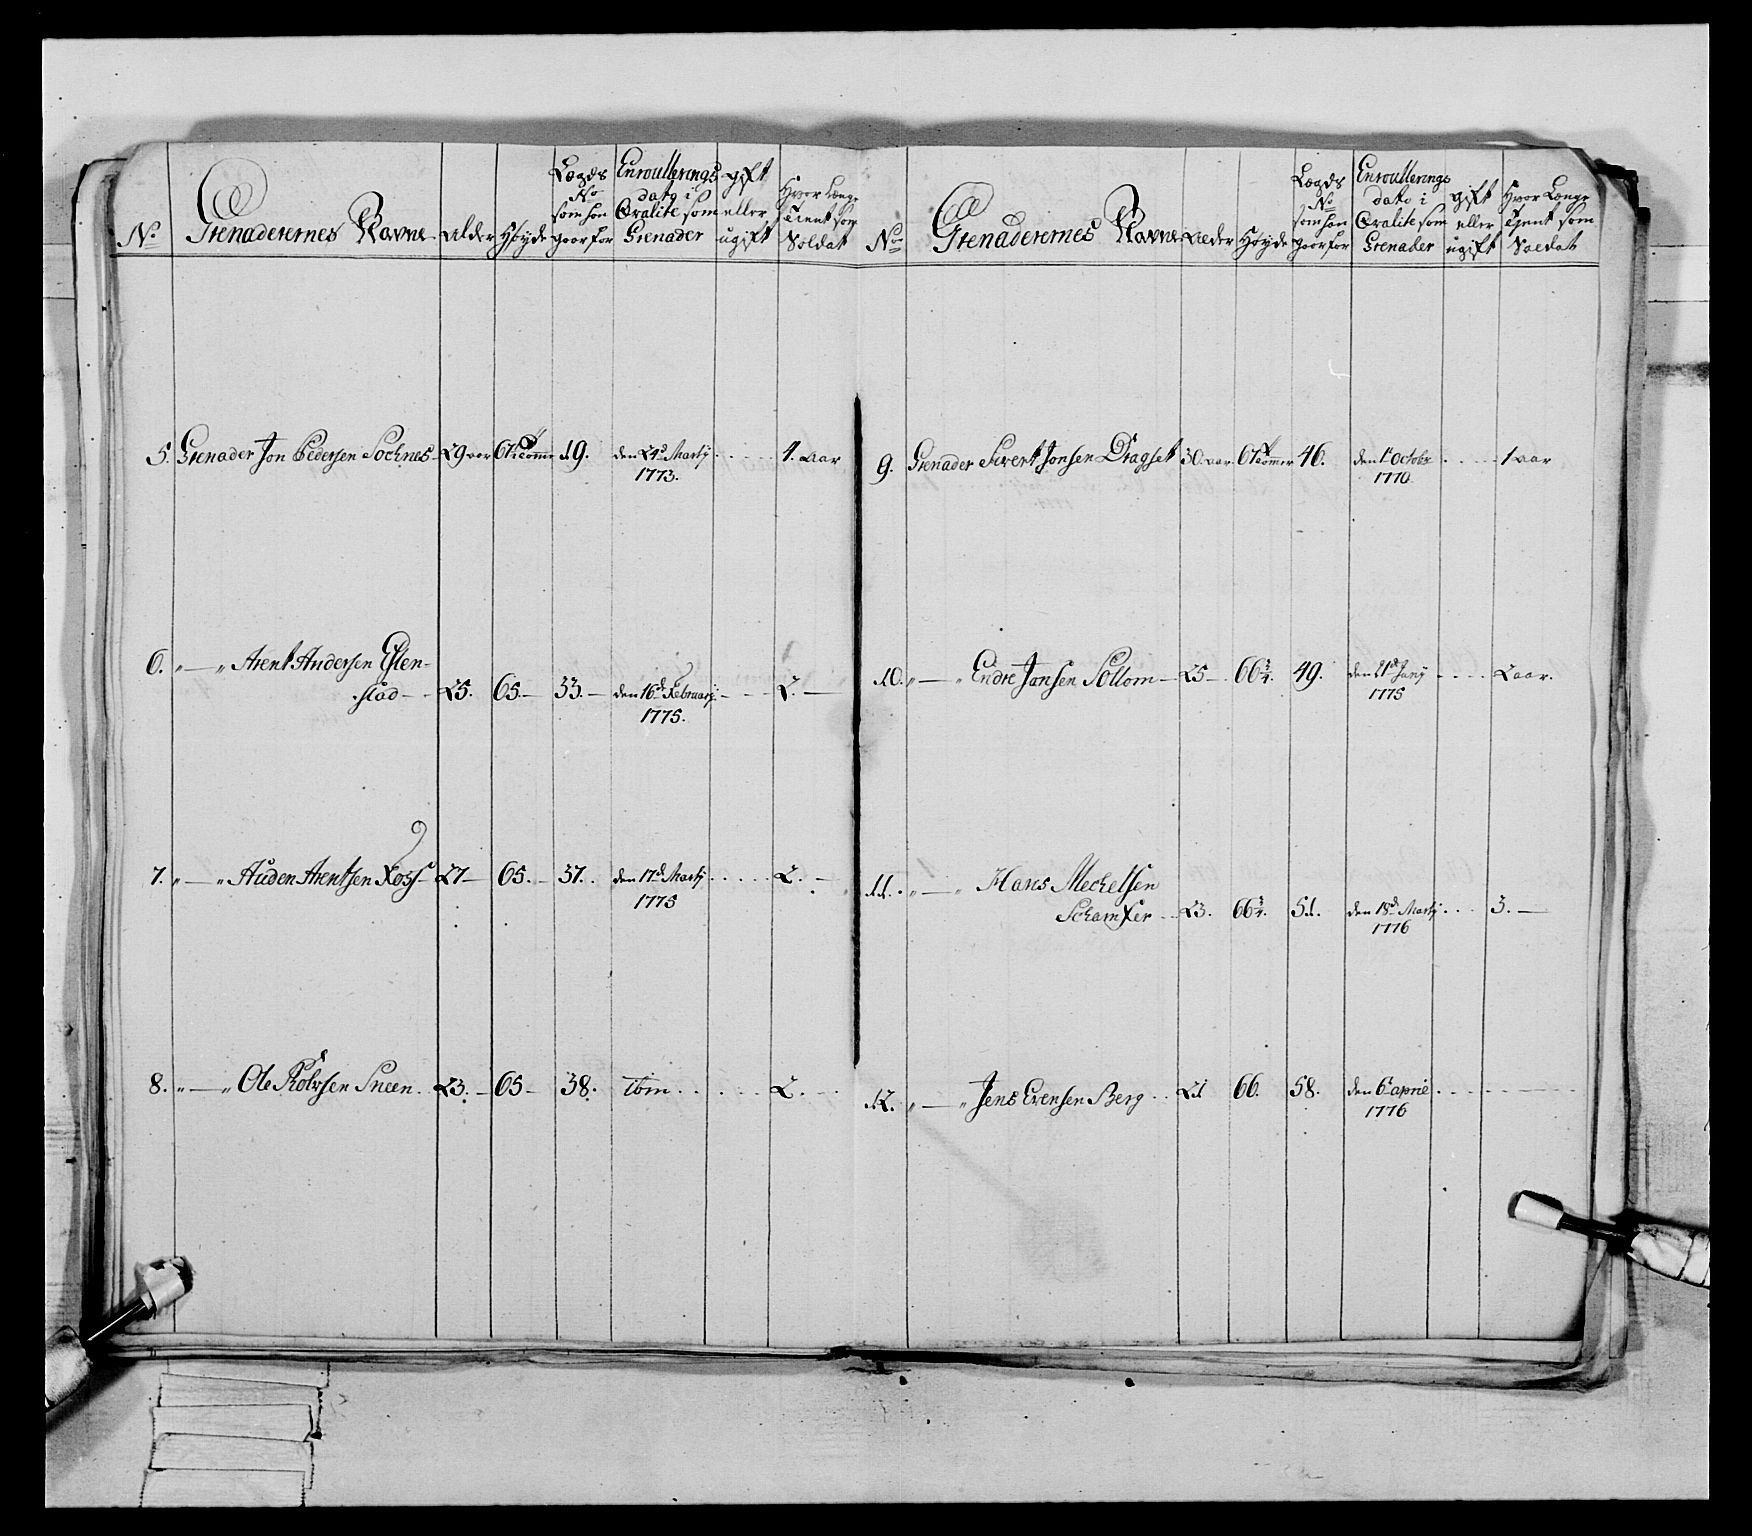 No
Grenaderernes Navne
Alder
Høyde
Lægds
No
som han
goer for
Enroullerings
dato i
Qvalite som
Grenader
gift
eller
ugift
Hvor Længe
Tient som
Soldat
5. Grenader Jon Pedersen Sochnes 29 aar 19. den 24d Martj 4. aar
1773.
6. " — " Arent Andersen Eslen-
stad — 25. 65. — 33. — den 16d Februarj — 2. —
1775.
7. " — " Auden Arentsen Foss — 27 — 65. — 37. den 17d Martj 2. —
1775
8. " — " Ole Rolvsen Sneen. 23. — 65 — 38. Ibm 2.
No
Grenaderernes Navne
Alder
Høyde
Lægds
No
som han
goer for
Enroullerings
dato i
Qvalite som
Grenader
gift
eller
ugift
Hvor Længe
Tjent som
Soldat
9. Grenader Sivert Jonsen Dragset 30. aar 46. den 1t Octobr 1 aar
1770
10. " — " Endre Jonsen Sollom — 25 — 66 3/4. 49. den 21d Junj 2 aar.
1775
11. " — " Hans Mechelsen
Schamfer 23. 66 3/4. 51. den 18d Martj 3. —
1776
12. " — " Jens Evensen Berg 21 66. 58. den 6t april
1776